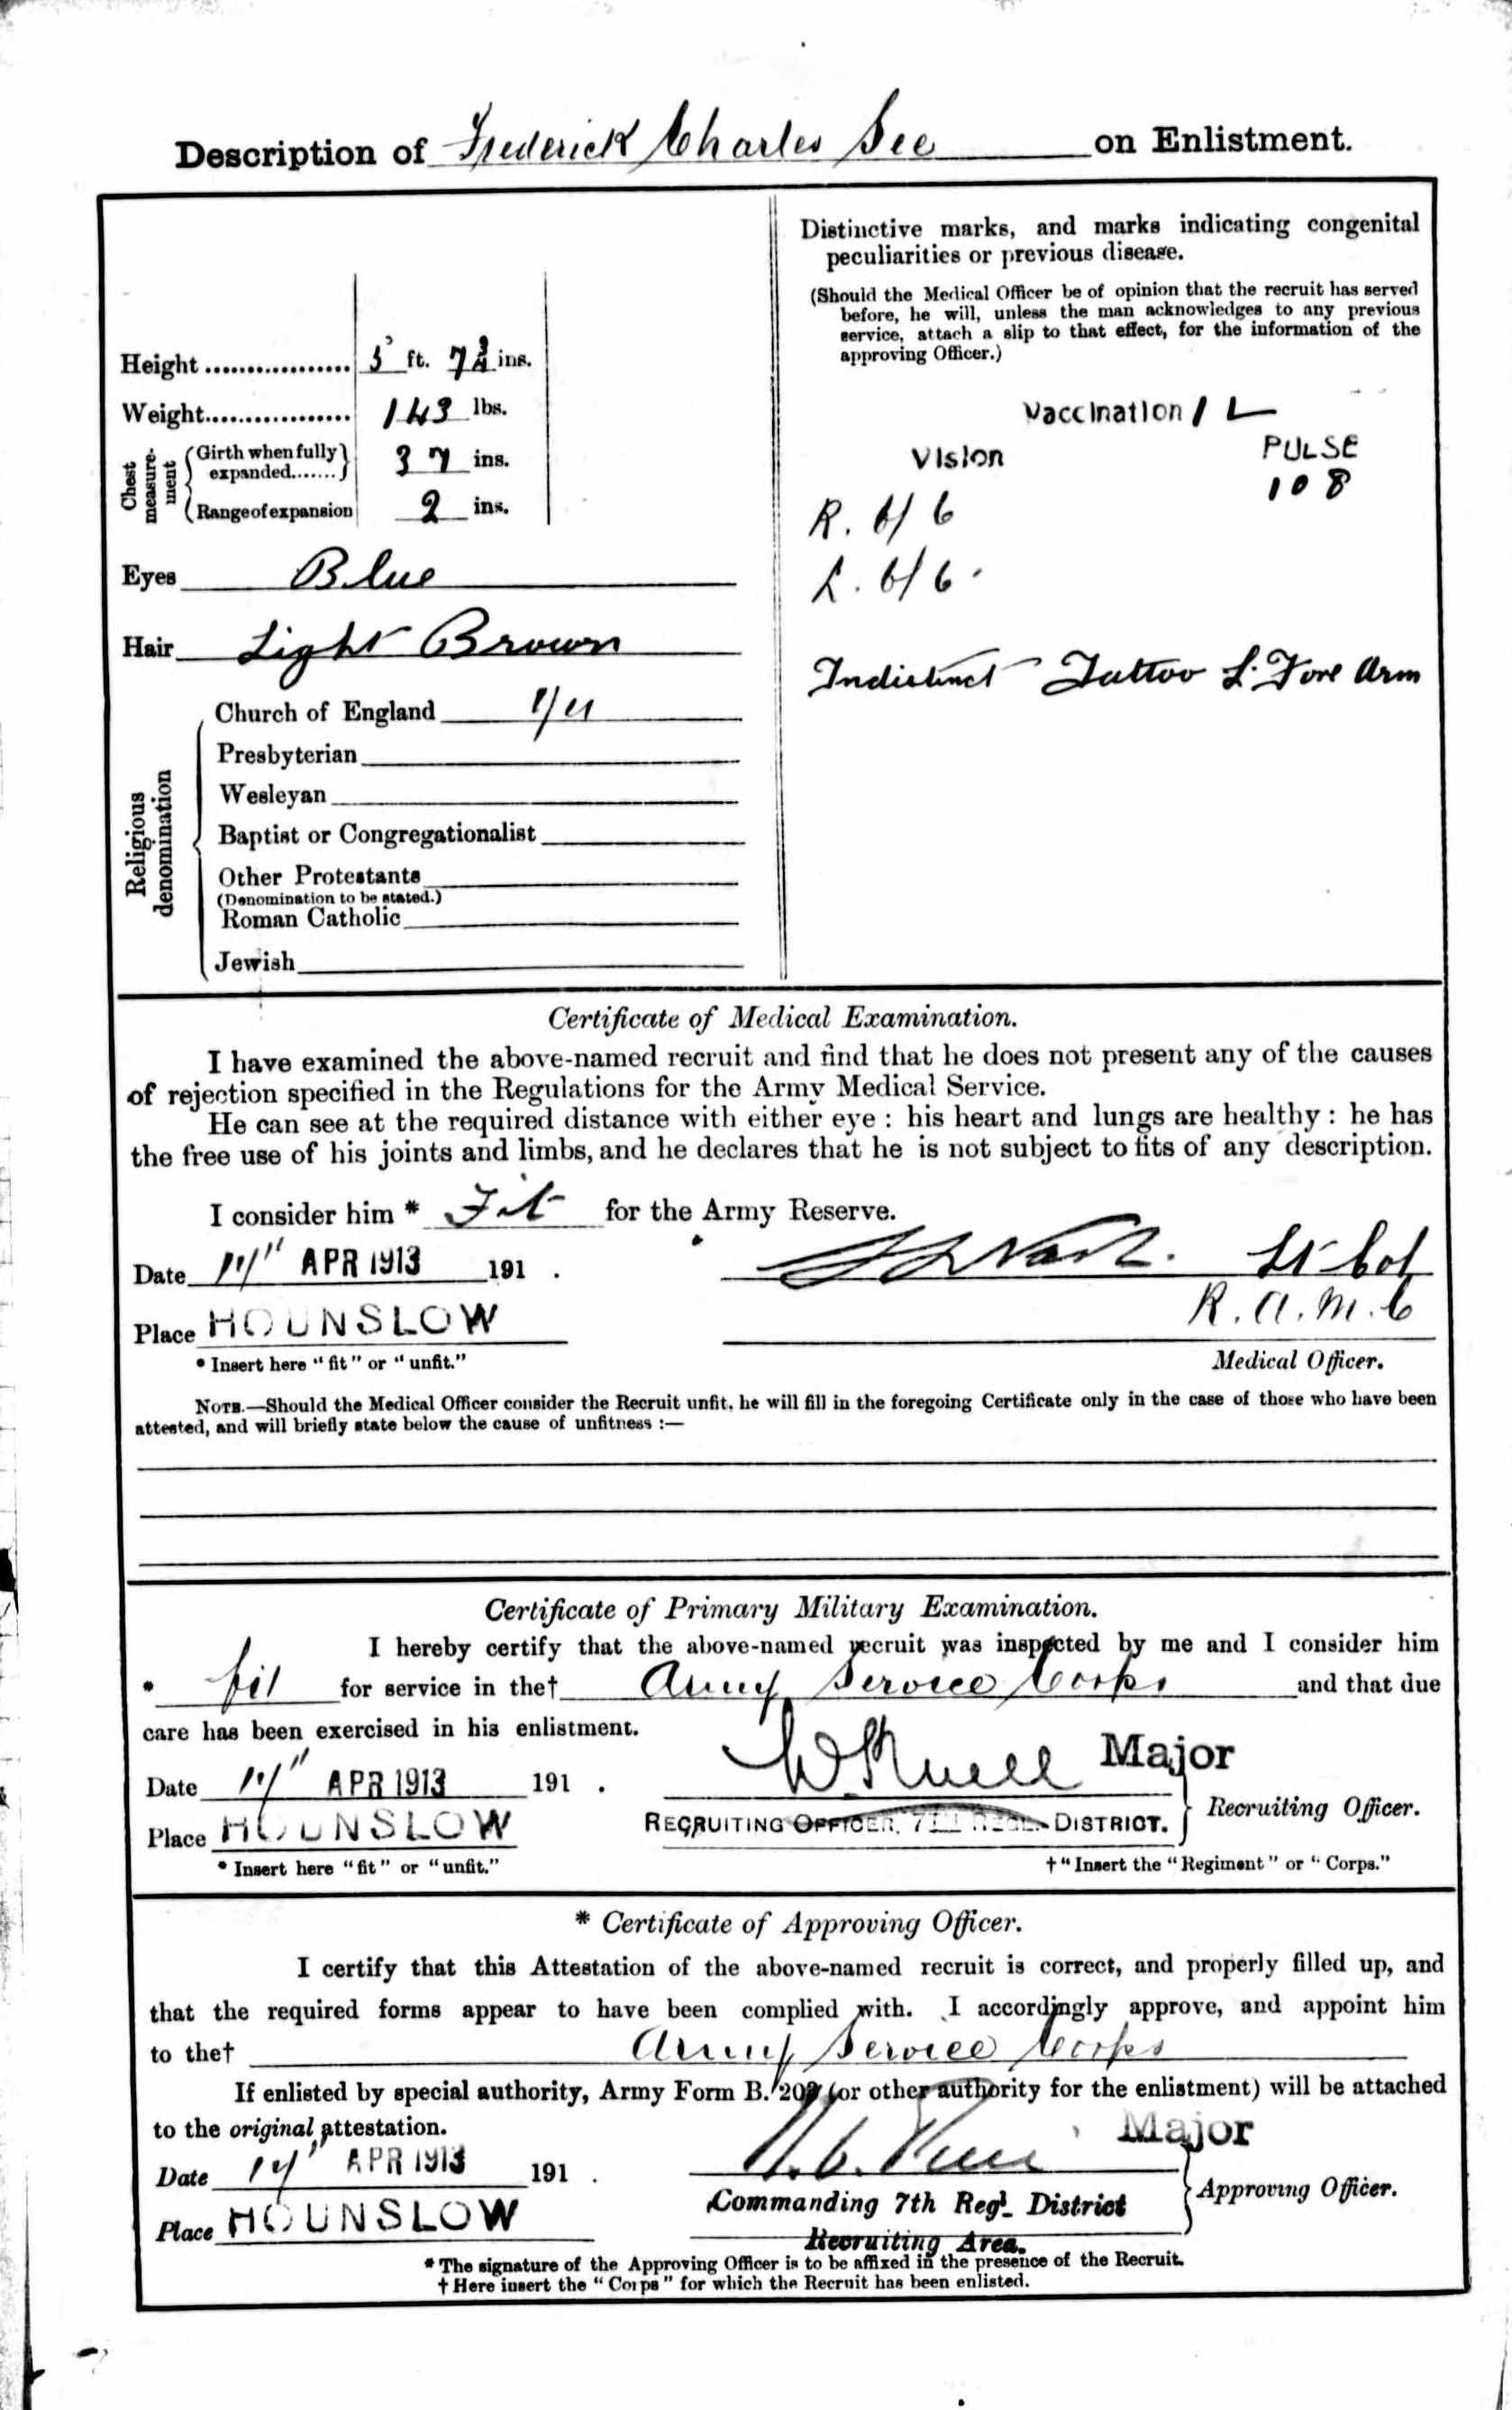 Description of Frederick Charles See on Enlistment.
Height ................. 5 ft. 7¾ ins.
Weight ................. 143 lbs.
Chest measure-ment
Girth when fully expanded....... 37 ins.
Range of expansion 2 ins.
Eyes Blue
Hair Light Brown
Religious denomination
Church of England
Presbyterian
Wesleyan
Baptist or Congregationalist
Other Protestants
(Denomination to be stated.)
Roman Catholic
Jewish
Distinctive marks, and marks indicating congenital
peculiarities or previous disease.
(Should the Medical Officer be of opinion that the recruit has served
before, he will, unless the man acknowledges to any previous
service, attach a slip to that effect, for the information of the
approving Officer.)
Vaccination 1 L
Vision PULSE
108
R. 6/6
L. 6/6.
Indistinct Tattoo L. Fore Arm
Certificate of Medical Examination.
I have examined the above-named recruit and find that he does not present any of the causes
of rejection specified in the Regulations for the Army Medical Service.
He can see at the required distance with either eye : his heart and lungs are healthy : he has
the free use of his joints and limbs, and he declares that he is not subject to fits of any description.
I consider him * Fit for the Army Reserve.
Date APR 1913 191 . Lt Col
Place HOUNSLOW R.A.M.C
* Insert here "fit" or "unfit." Medical Officer.
NOTE.—Should the Medical Officer consider the Recruit unfit, he will fill in the foregoing Certificate only in the case of those who have been
attested, and will briefly state below the cause of unfitness :—
Certificate of Primary Military Examination.
I hereby certify that the above-named recruit was inspected by me and I consider him
* fit for service in the† Army Service Corps and that due
care has been exercised in his enlistment.
Major
Date APR 1913 191 .
Place HOUNSLOW RECRUITING OFFICER, 7TH REGL. DISTRICT. Recruiting Officer.
* Insert here "fit" or "unfit." † "Insert the "Regiment" or "Corps."
* Certificate of Approving Officer.
I certify that this Attestation of the above-named recruit is correct, and properly filled up, and
that the required forms appear to have been complied with. I accordingly approve, and appoint him
to the† Army Service Corps
If enlisted by special authority, Army Form B. 203 (or other authority for the enlistment) will be attached
to the original attestation.
Major
Date APR 1913 191 .
Commanding 7th Regl. District Approving Officer.
Place HOUNSLOW Recruiting Area.
* The signature of the Approving Officer is to be affixed in the presence of the Recruit.
† Here insert the "Corps" for which the Recruit has been enlisted.